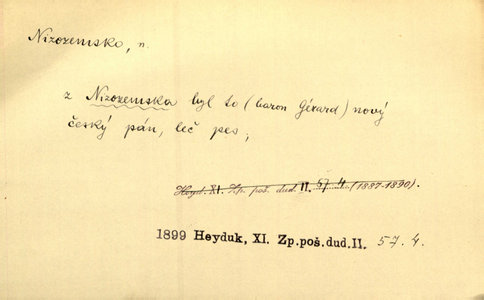 Nizozemsko, n.
z Nizozemska byl to (baron Gérard) nový
český pán, leč pes;
Heyd. XI. Zp. poš. dud. II. 57. 4. (1887-1890).
1899 Heyduk, XI. Zp.poš.dud.II. 57. 4.